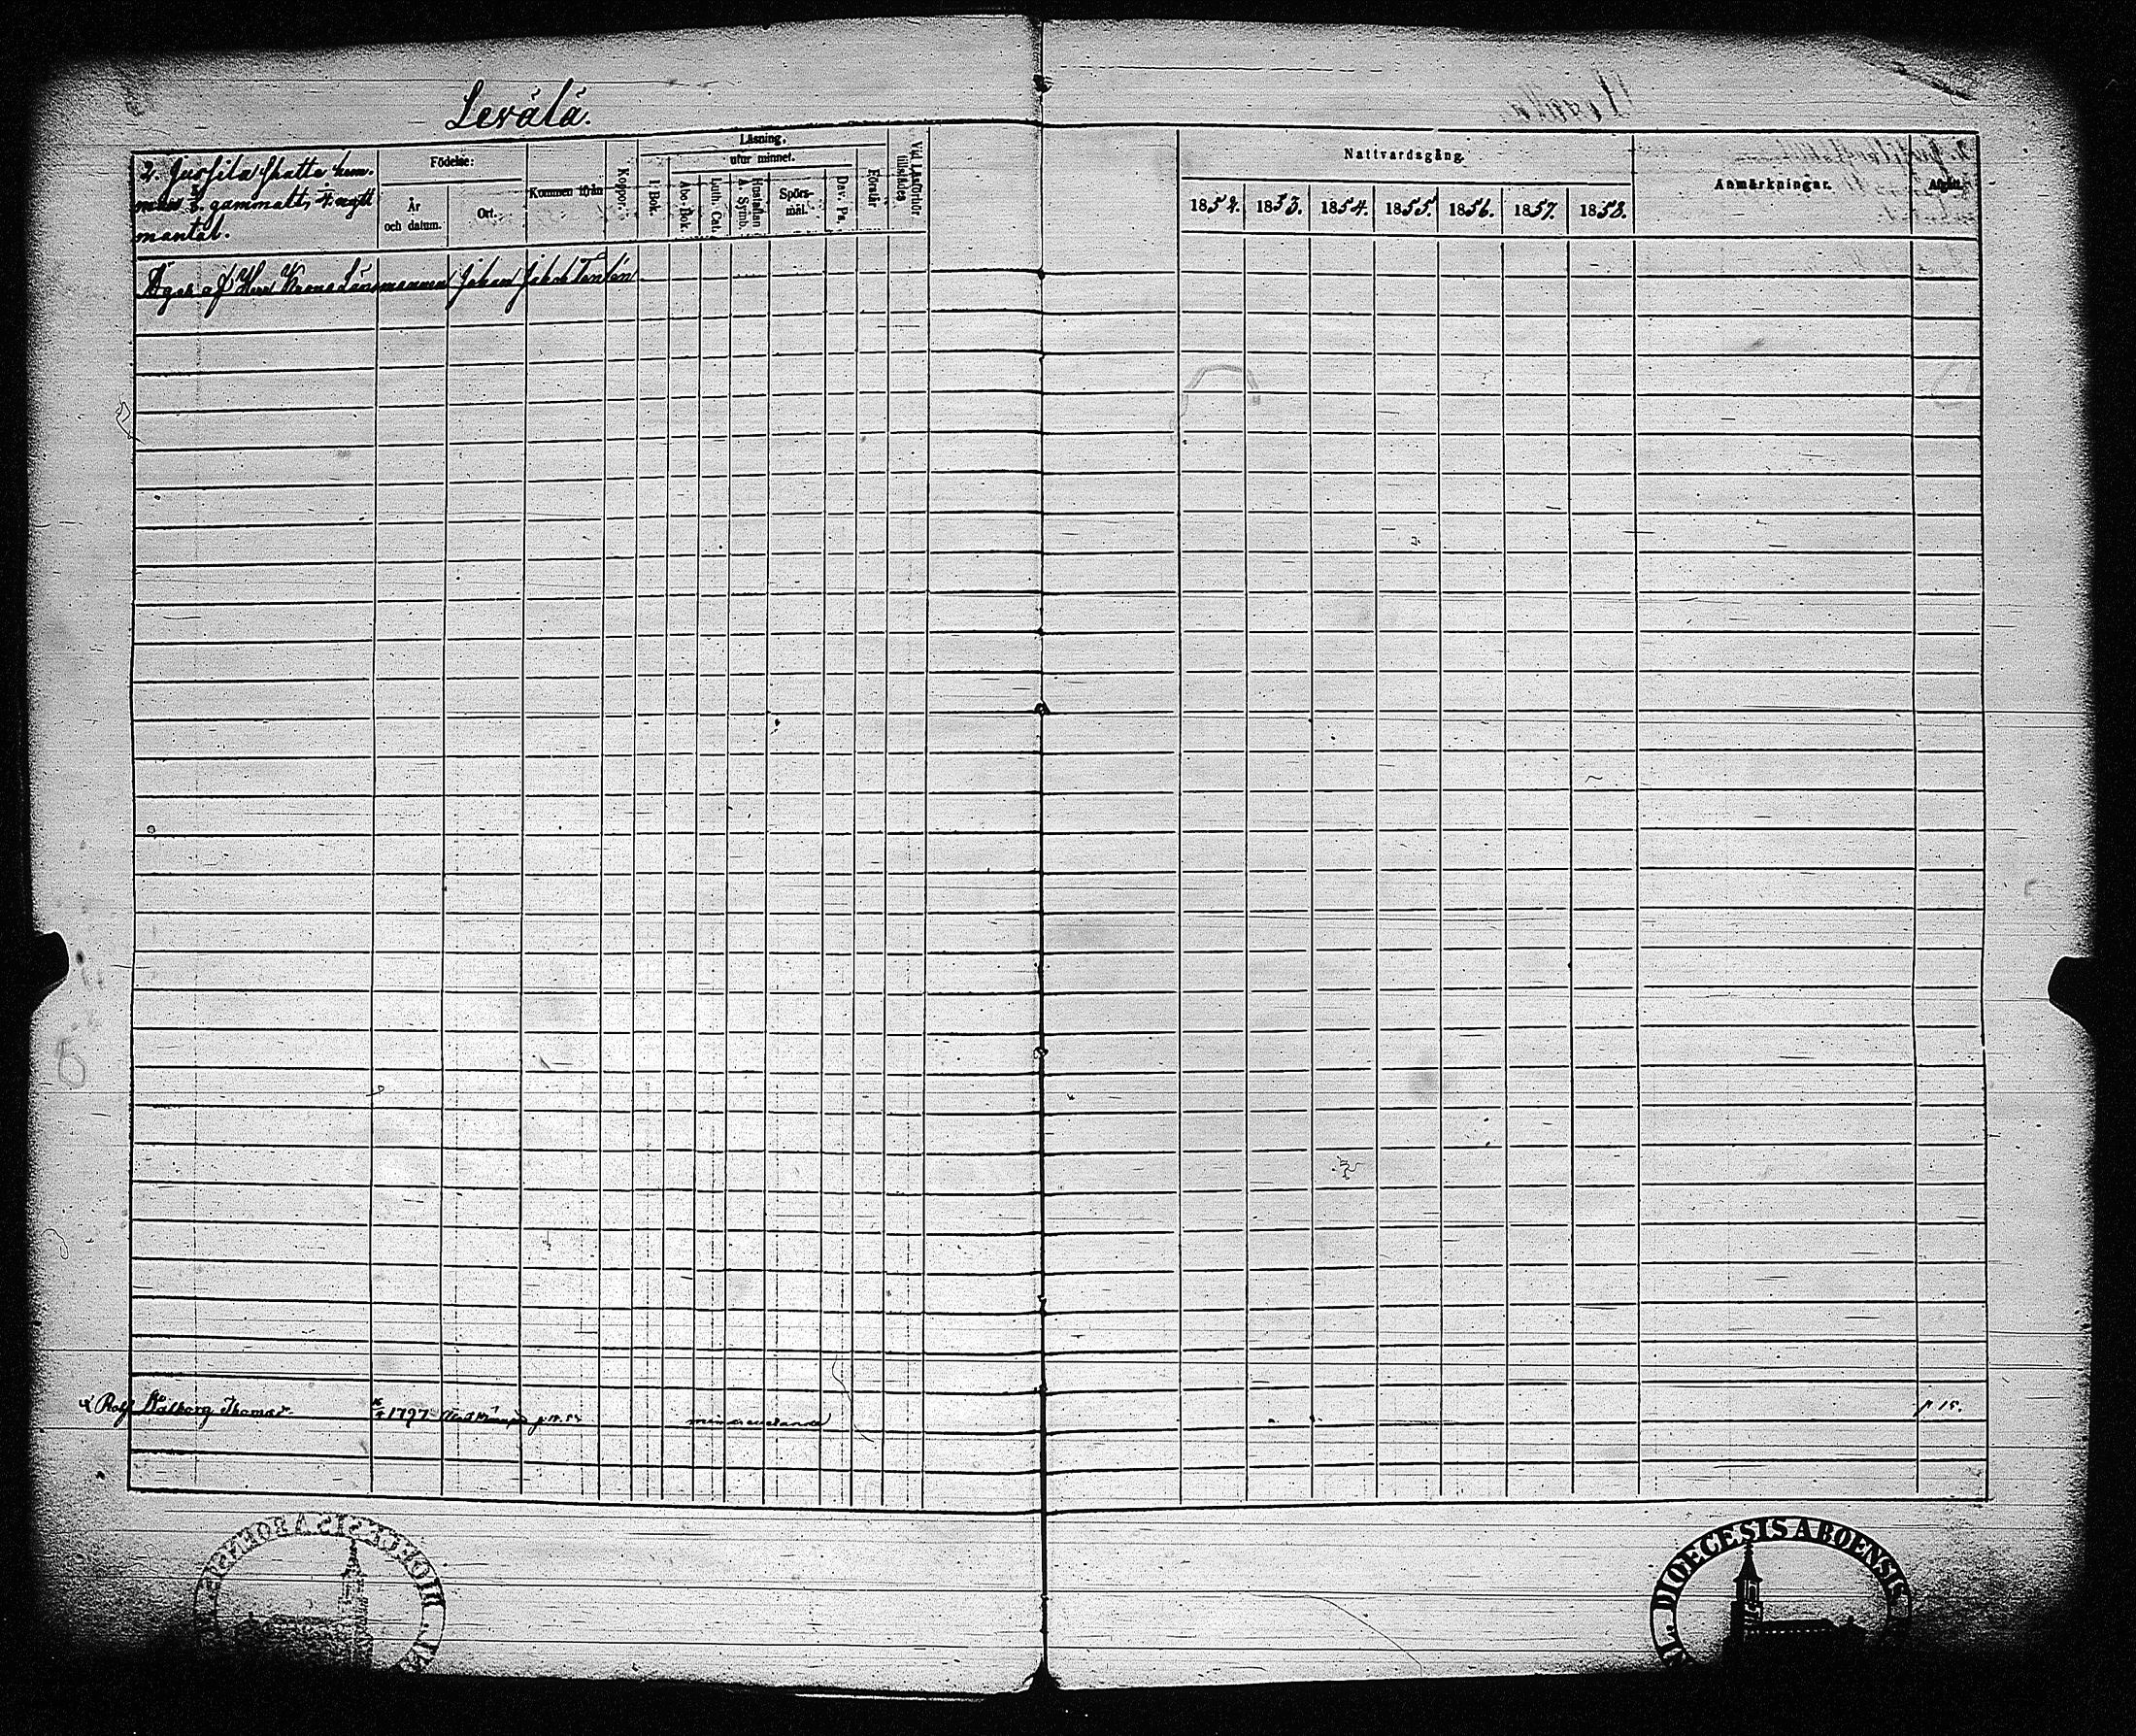 Levälä.
2. Jussila skatte hem-
man gammalt, nytt
mantal.
Födelse:
År
och datum.
Ort.
Kommen ifrån
Koppor.
Läsning.
utur minnet.
I Bok.
Abc Bok.
Luth. Cat.
Hustaflan
A. Symb.
Spörs-
mål.
Dav. Ps.
Förstår
Vid Läsförhör
tillstädes
Nattvardsgång.
1852.
1853.
1854.
1855.
1856.
1857.
1858.
Anmärkningar.
Afgått.
Äges af Herr Krono Länsmannen Johan Jakob
Walborg Thomasr. 1797 p 18.
DIOECESIS ABOENSIS